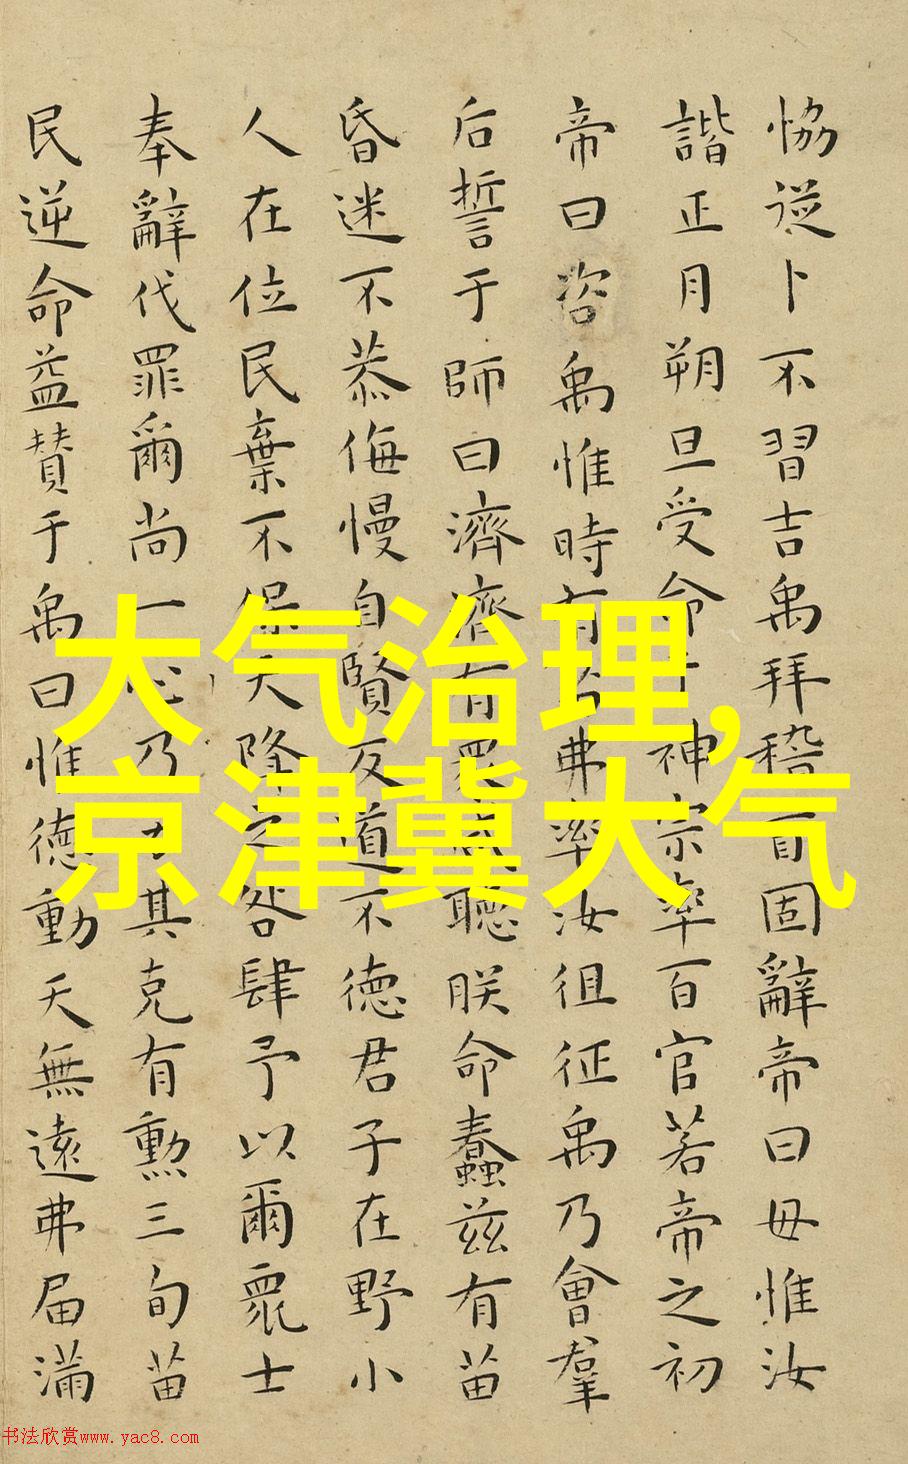 恊從卜不習吉禹拜稽首固辭帝曰毋惟汝
諧正月朔旦受命于神宗率百官若帝之初
帝曰咨禹惟時有苗弗率汝徂征禹乃會羣
后誓于師曰濟濟有眾咸聽朕命蠢兹有苗
昏迷不恭侮慢自賢反道不德君子在野小
人在位民棄不保天降之咎肆予以爾眾士
奉辭伐罪爾尚一心乃力其克有勲三旬苗
民逆命益賛于禹曰惟德動天無遠弗届滿
大气治理,
京津冀大气
书法欣赏www.yac8.com